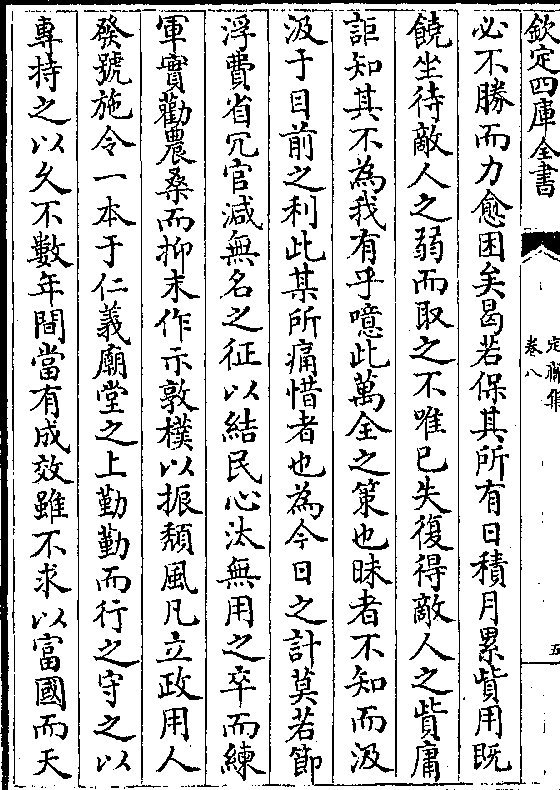 欽定四庫全書
卷八
五
必不勝而力愈困矣曷若保其所有日積月累貲用既
饒坐待敵人之弱而取之不唯已失復得敵人之貲庸
詎知其不為我有乎噫此萬全之策也昧者不知而汲
汲于目前之利此某所痛惜者也為今日之計莫若節
浮費省冗官減無名之征以結民心汰無用之卒而練
軍實勸農桑而抑末作示敦樸以振頽風凡立政用人
發號施令一本于仁義廟堂之上勤勤而行之守之以
專持之以久不數年間當有成效雖不求以富國而天